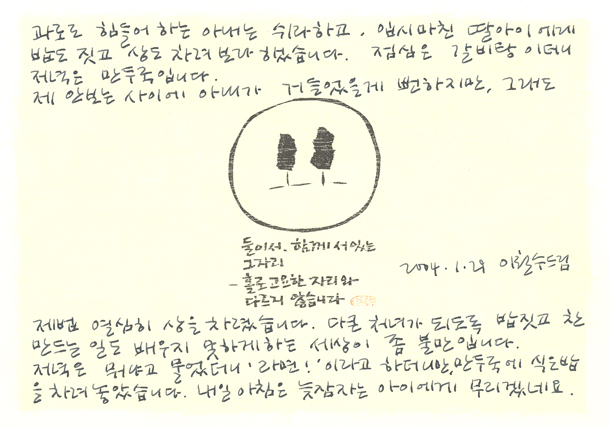 과로로 힘들어 하는 아내는 쉬라하고, 입시마친 딸아이에게
밥도 짓고 상도 차려보라 했습니다. 점심은 갈비탕이더니
저녁은 만두국입니다.
제 안보는 사이에 아내가 거들었을게 뻔하지만, 그래도
둘이서, 함께 서있는
그자리
- 홀로 고요한 자리와
다르지 않습니다
2004.1.29 이철수드림
제법 열심히 상을 차렸습니다. 다큰 처녀가 되도록 밥짓고 찬
만드는 일도 배우지 못하게하는 세상이 좀 불만입니다.
저녁은 뭐냐고 물었더니 '라면!' 이라고 하더니만, 만두국에 식은밥
을 차려 놓았습니다. 내일 아침은 늦잠자는 아이에게 무리겠네요.